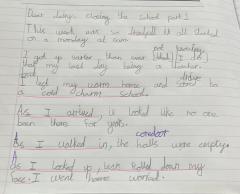 Dear diary, closing the school part 1
This week was so it all started
on a monday at 5am.
not
I got up earlier than ever I do
that my last day being a teacher.
drive
I left my warm home and to
a cold charm school.
As I arrived, it looked like no one
been there for years.
As I walked in, the halls were empty.
As I looked up, tears rolled down my
face. I went home worried.